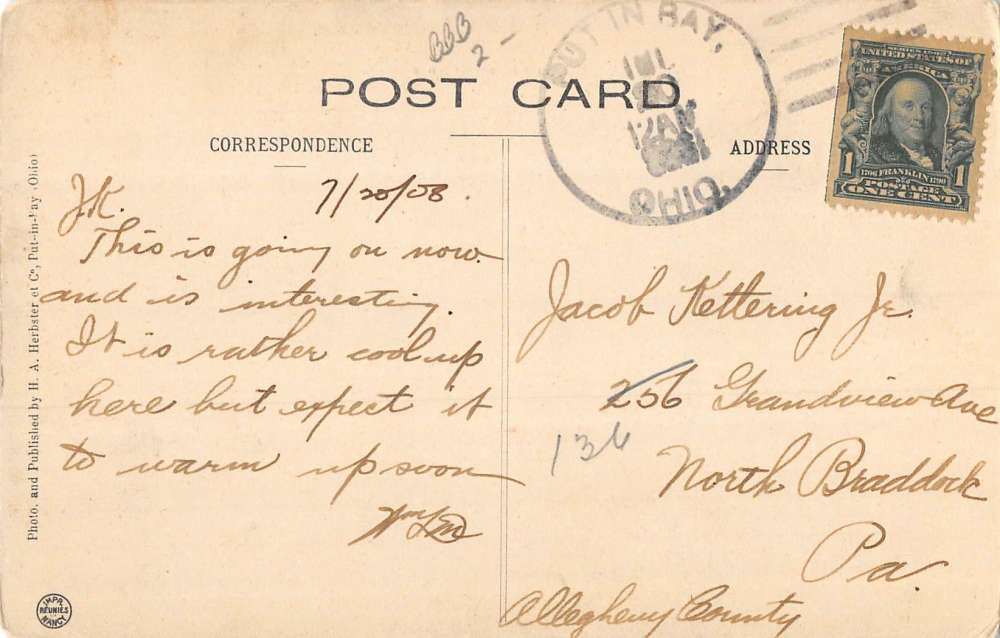 BBB
2 -
PUT IN BAY,
JUL
20
12 AM
OHIO.
POST CARD
CORRESPONDENCE
ADDRESS
SERIES 1902
UNITED STATES OF
AMERICA
1706 FRANKLIN 1790
POSTAGE
1 ONE CENT 1
J.K. 7/20/08.
This is going on now
and is interesting.
It is rather cool up
here but expect it
to warm up soon
Jacob Kettering Jr.
256 Grandview Ave
136
North Braddock
Pa.
Allegheny County
Photo. and Published by H. A. Herbster et Co, Put-in-Bay (Ohio)
IMPR.
RÉUNIES
NANCY